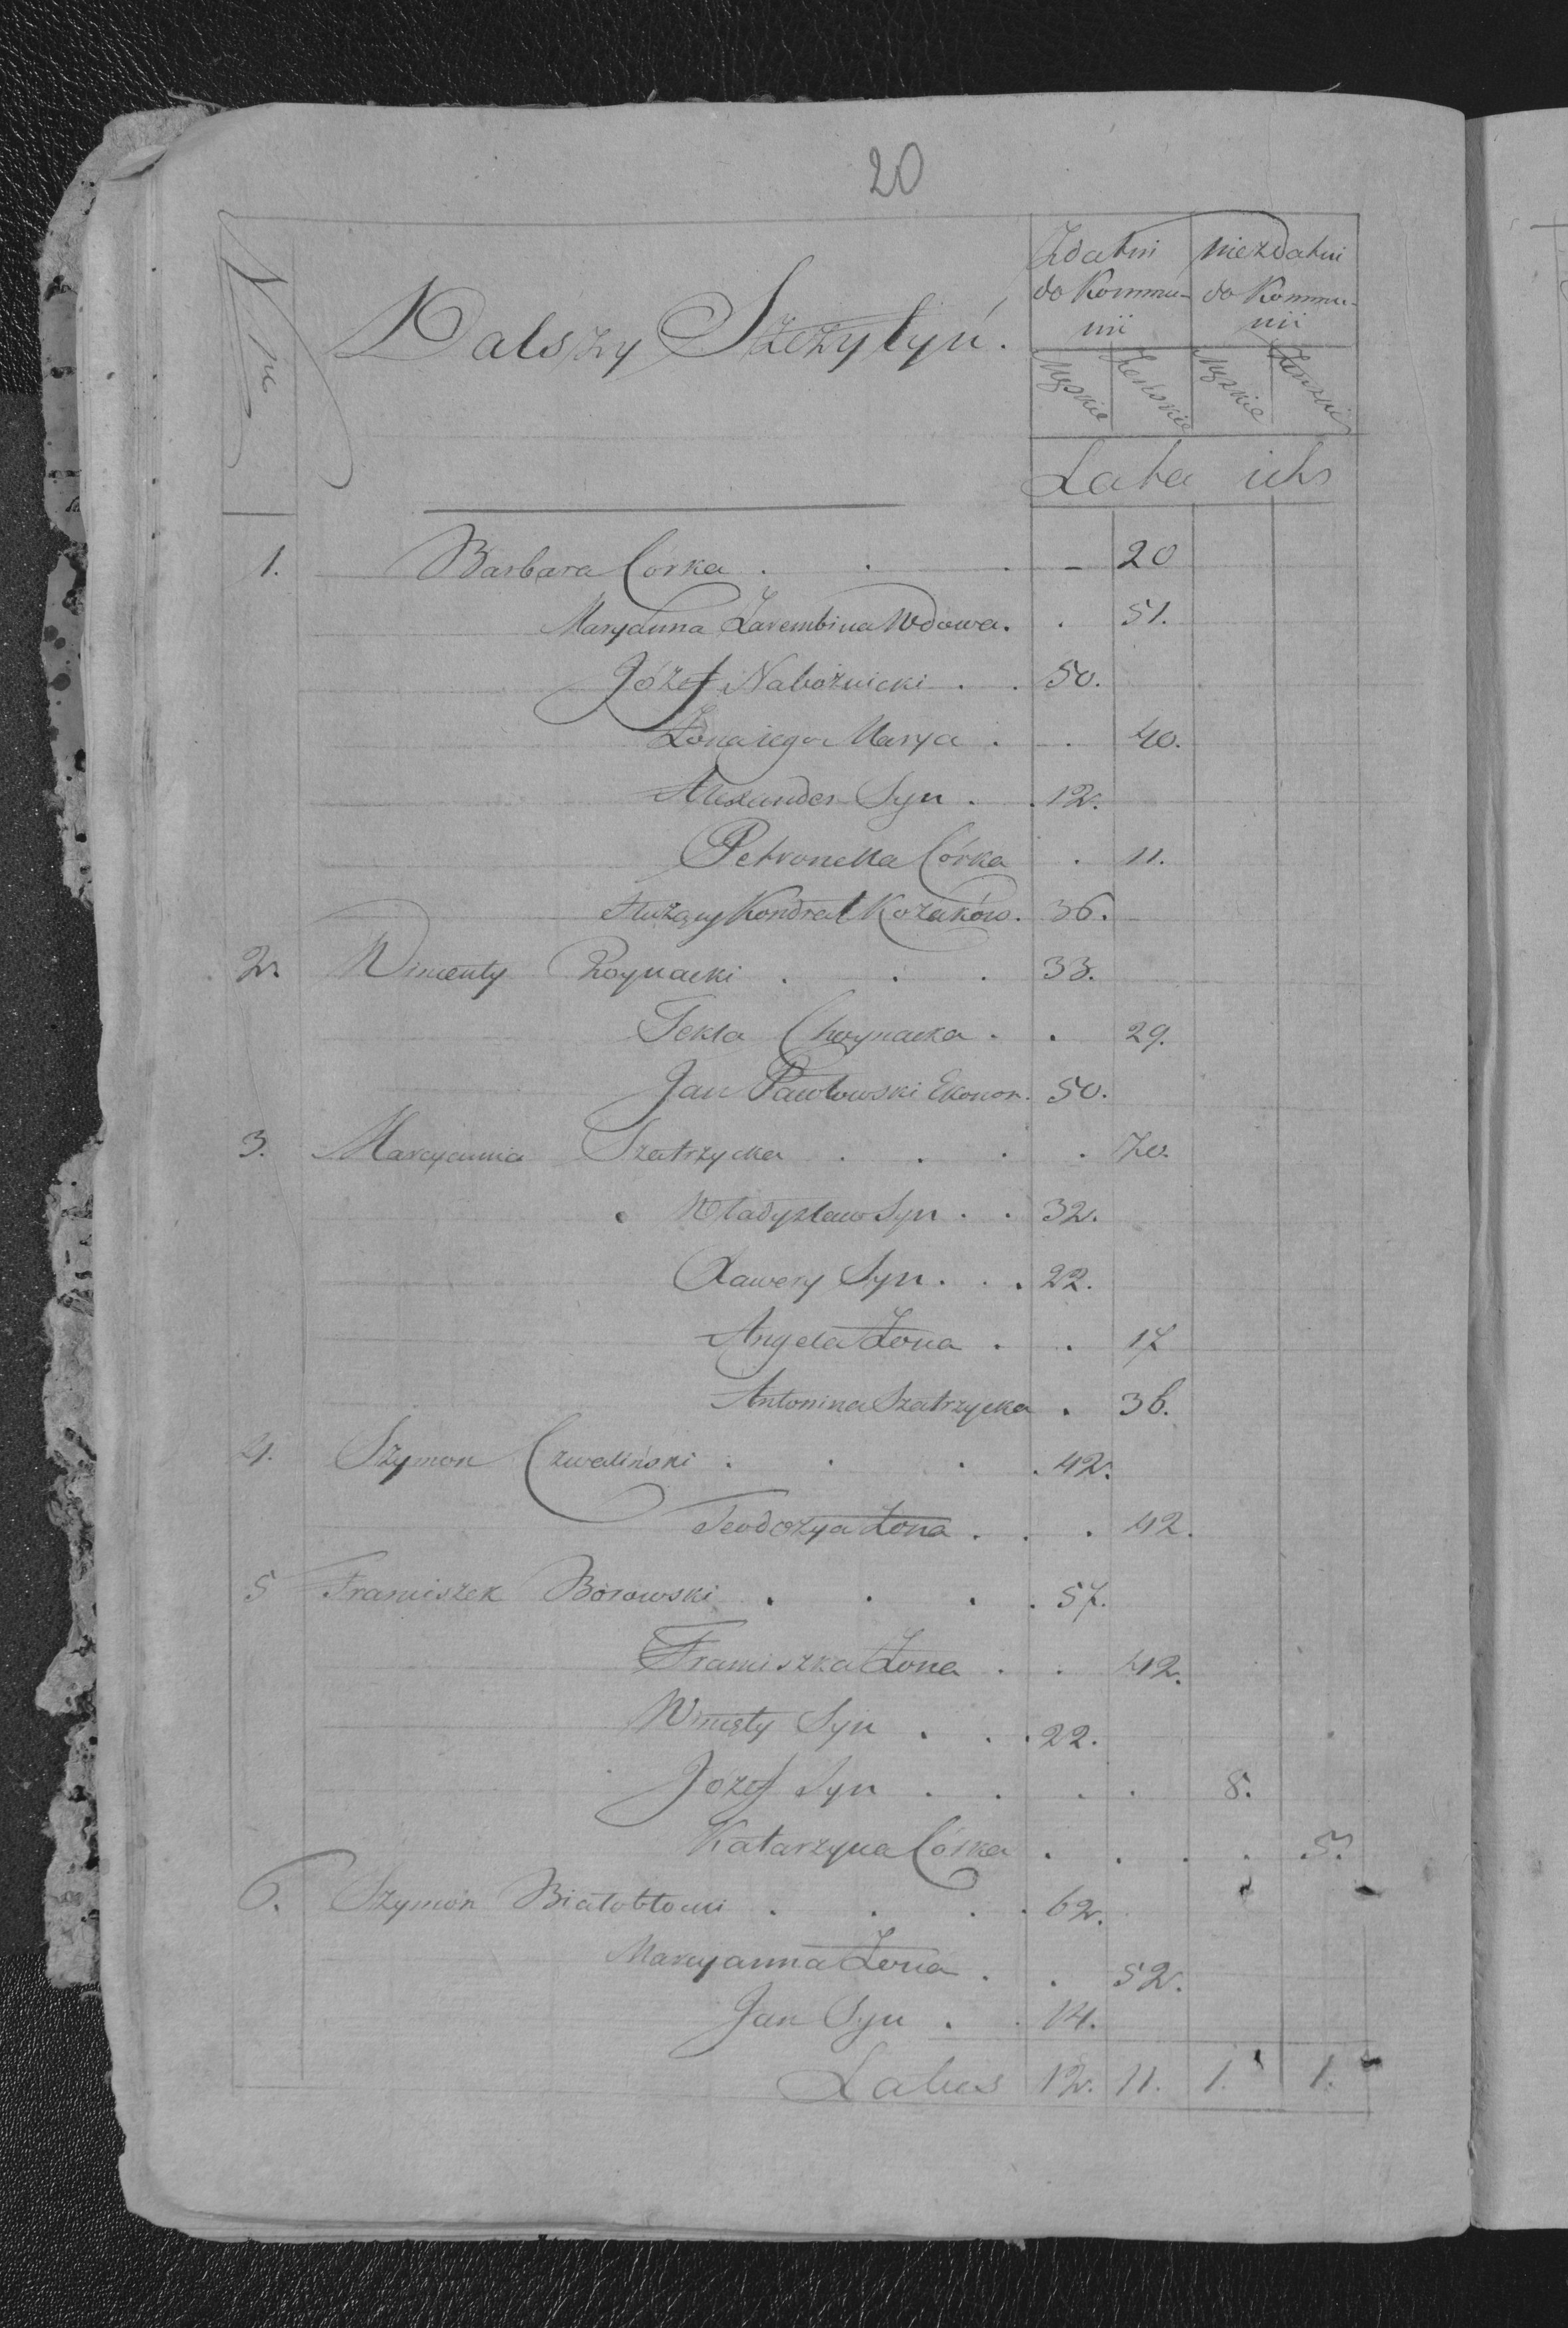 20
Dalszy Szczytyń.
Zdatni do Kommunii
niezdatni do Kommunii
Męskie Żeńskie Męzkie Żenzkie
Lata ich
1. Barbara Corka . . . - 20
Maryanna Zarembina Wdowa. . 51.
Józef Nabożnicki . . 50.
Żona iego Marya . . 40.
Alexander Syn . . 12.
Petronella Córka . 11.
Służący Kondrat Kozaków. 36.
2. Wincenty Choynacki . . . 33.
Tekla Choynacka . . 29.
Jan Pawłowski Ekonom. 50.
3. Maryanna Szatrzycka . . . . 70.
Władysław Syn . . 32.
Xawery Syn . . . 22.
Angela Żona . . 17
Antonina Szatrzycka . 36.
4. Szymon Czwaliński . . . . 42.
Teodozya Żona . . . 42.
5 Franciszek Borowski . . . . 57.
Franciszka Żona . . 42.
Wincęty Syn . . . 22.
Józef Syn . . . . 8.
Katarzyna Córka . . . . . 5.
6. Szymon Białobłocki . . . . 62.
Maryanna Żona . . 52.
Jan Syn . . 14.
Latus 12. 11. 1. 1.